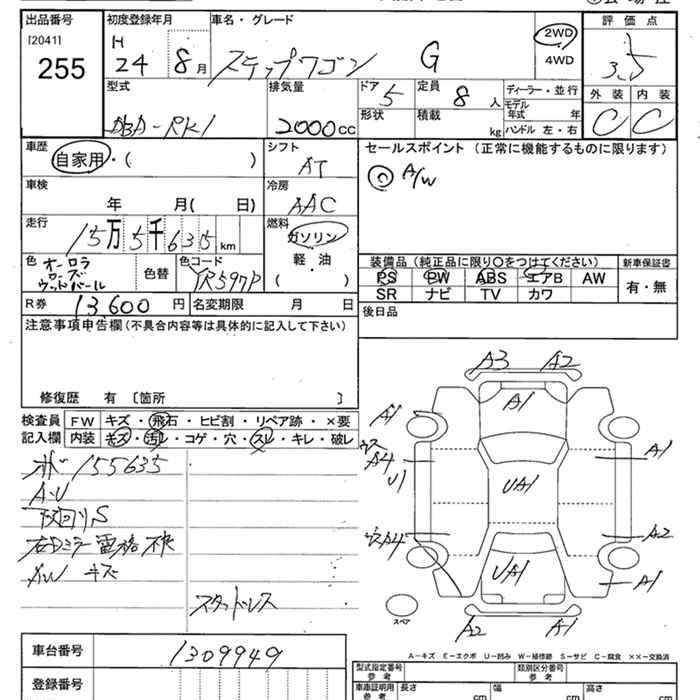 出品番号 初度登録年月 車名・グレード 評価点
[2041] H 2WD
255 24 8月 ステップワゴン G 4WD 3.5
型式 排気量 ドア 5 定員 8人 ディーラー・並行 外装 内装
DBA-RK1 2000cc 形状 積載 kg モデル年式 年 C C
ハンドル 左・右
車歴 シフト セールスポイント (正常に機能するものに限ります)
自家用・( ) AT ◎ A/W
車検 冷房
年 月( 日) AAC
走行 燃料
15万5千635km ガソリン
色 オーロラ 色替 色コード 軽・油 装備品 (純正品に限り○をつけてください) 新車保証書
YR597P ( ) PS PW ABS エアB AW 有・無
R券 13,600円 名変期限 月 日 SR ナビ TV カワ
注意事項申告欄(不具合内容等は具体的に記入して下さい) 後日品
修復歴 有 〔箇所 〕
A3 A2
A1
検査員 FW キズ・飛石・ヒビ割・リペア跡・×要
記入欄 内装 キズ・汚レ・コゲ・穴・スレ・キレ・破レ
A1
A4 A1
U1
155635
UA1
A4 A2
UA1 A1
右Dミラー
AW キズ
スタッドレス
スペア
A2 A1
A-キズ E-エクボ U-凹み W-補修跡 S-サビ C-腐食 ××-交換済
車台番号 1309949 型式指定番号 参考 類別区分番号 参考
登録番号 車庫証明用 参考 長さ cm 幅 cm 高さ cm